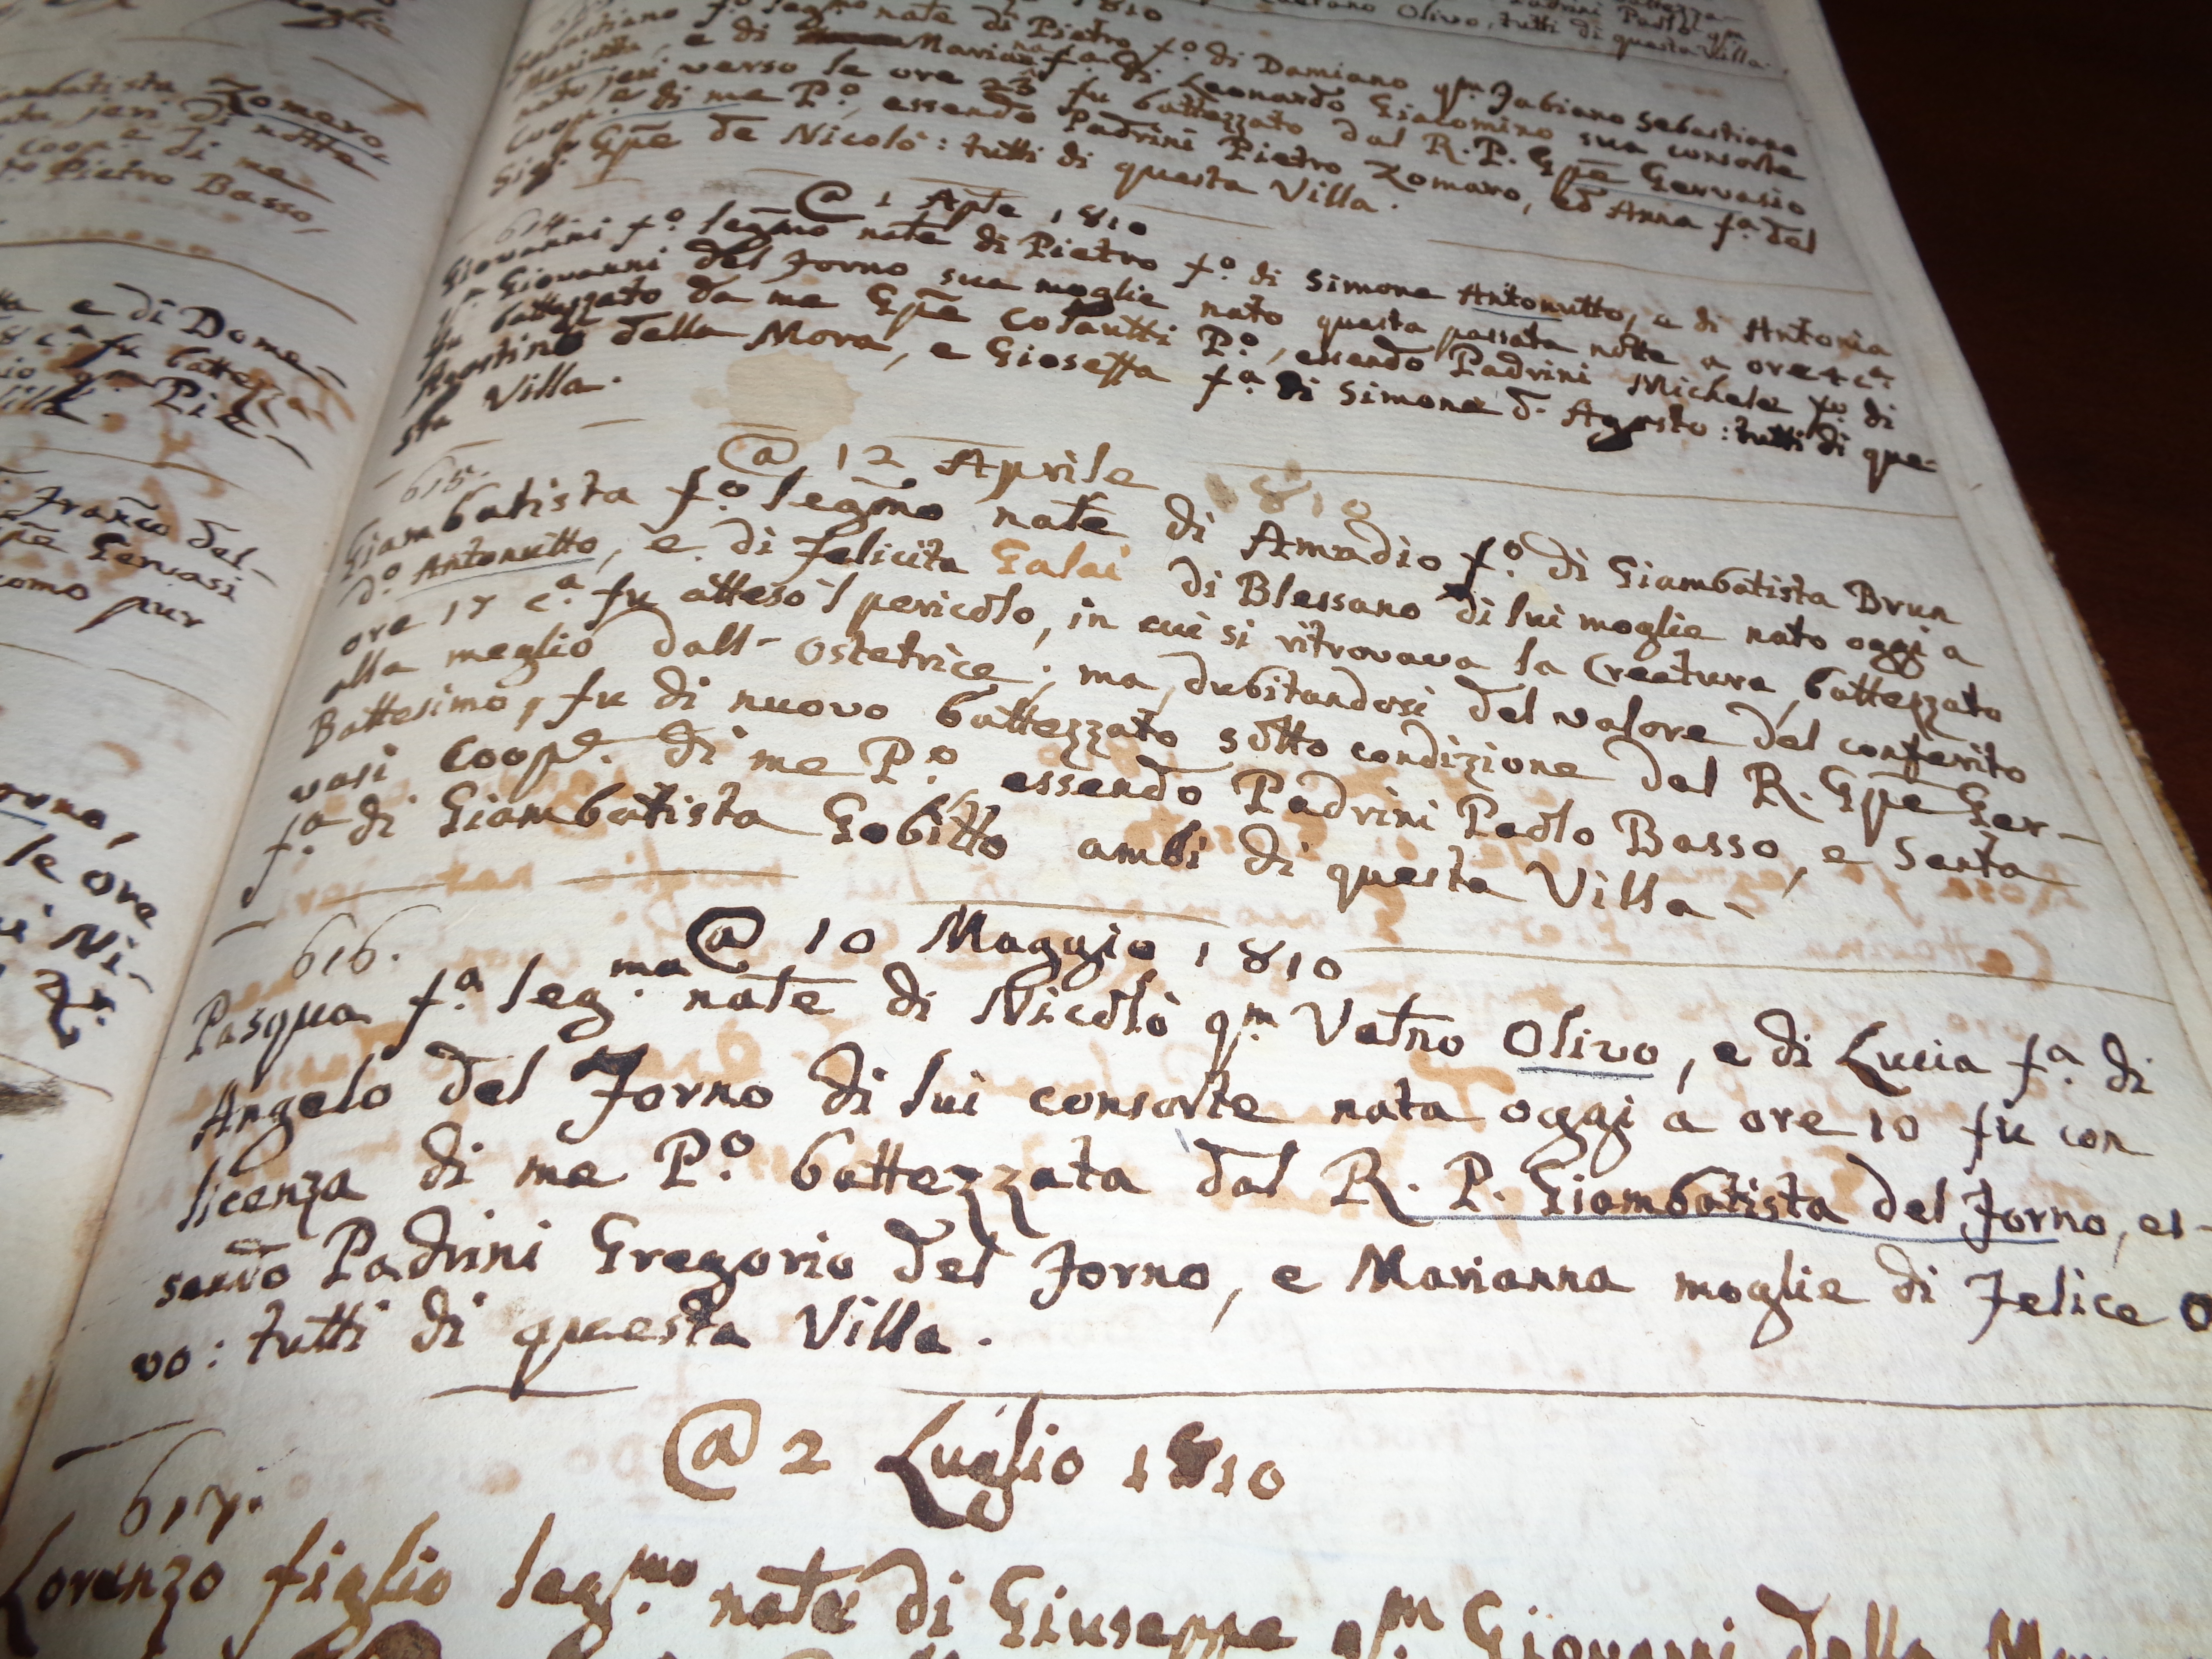 mbatista Zomero
jeri di notte
Coop.e di me
Pietro Basso
e di Dome-
fu battez
Pie-
Franco del-
Gervasi
como pur
le ore
Ni-
1810
Olivo, tutti di questa Villa.
Sebastiano f.o legmo nate di Pietro f.o di Damiano qm Fabiano Sebastiano
e di Marianna f.a di Leonardo Giacomino sua consorte
nato jeri verso le ore 23 fu battezzato dal R. P. Gpe Gervasio
Coop.e di me P.o, essendo Padrini Pietro Zomaro, ed Anna f.a del
Sig.r Gpe de Nicolò: tutti di questa Villa.
614.
@ 1 Aple 1810
Giovanni f.o legmo nate di Pietro f.o di Simone Antonutto, e di Antonia
Giovanni del Forno sua moglie nato questa passata notte a ore 4 c.a
fu battezzato da me Gpe Colautti P.o, essendo Padrini Michele f.o di
Agostino della Mora, e Gioseffa f.a di Simone d. Agosto: tutti di que-
sta Villa.
615.
@ 12 Aprile 1810
Giambatista f.o legmo nate di Amadio f.o di Giambatista Brun
d.o Antonutto, e di Felicita Galai di Blessano di lui moglie nato oggi a
ore 17 c.a fu atteso l pericolo, in cui si ritrovava la Creatura, battezzato
alla meglio dall- Ostetrice; ma, dubitandosi del valore del conferito
Battesimo, fu di nuovo battezzato sotto condizione dal R. Gpe Ger-
vasi Coope. di me P.o, essendo Padrini Paolo Basso, e Santa
f.a di Giambatista Gobitto ambi di questa Villa.
616.
@ 10 Maggio 1810
Pasqua f.a leg.ma nate di Nicolò qm Vatno Olivo, e di Lucia f.a di
Angelo del Forno di lui consorte nata oggi a ore 10 fu con
licenza di me P.o battezzata dal R. P. Giambatista del Forno, es-
sendo Padrini Gregorio del Forno, e Marianna moglie di Felice O
vo: tutti di questa Villa.
617.
@ 2 Luglio 1810
Lorenzo figlio leg.mo nate di Giuseppe qm Giovanni della Mo